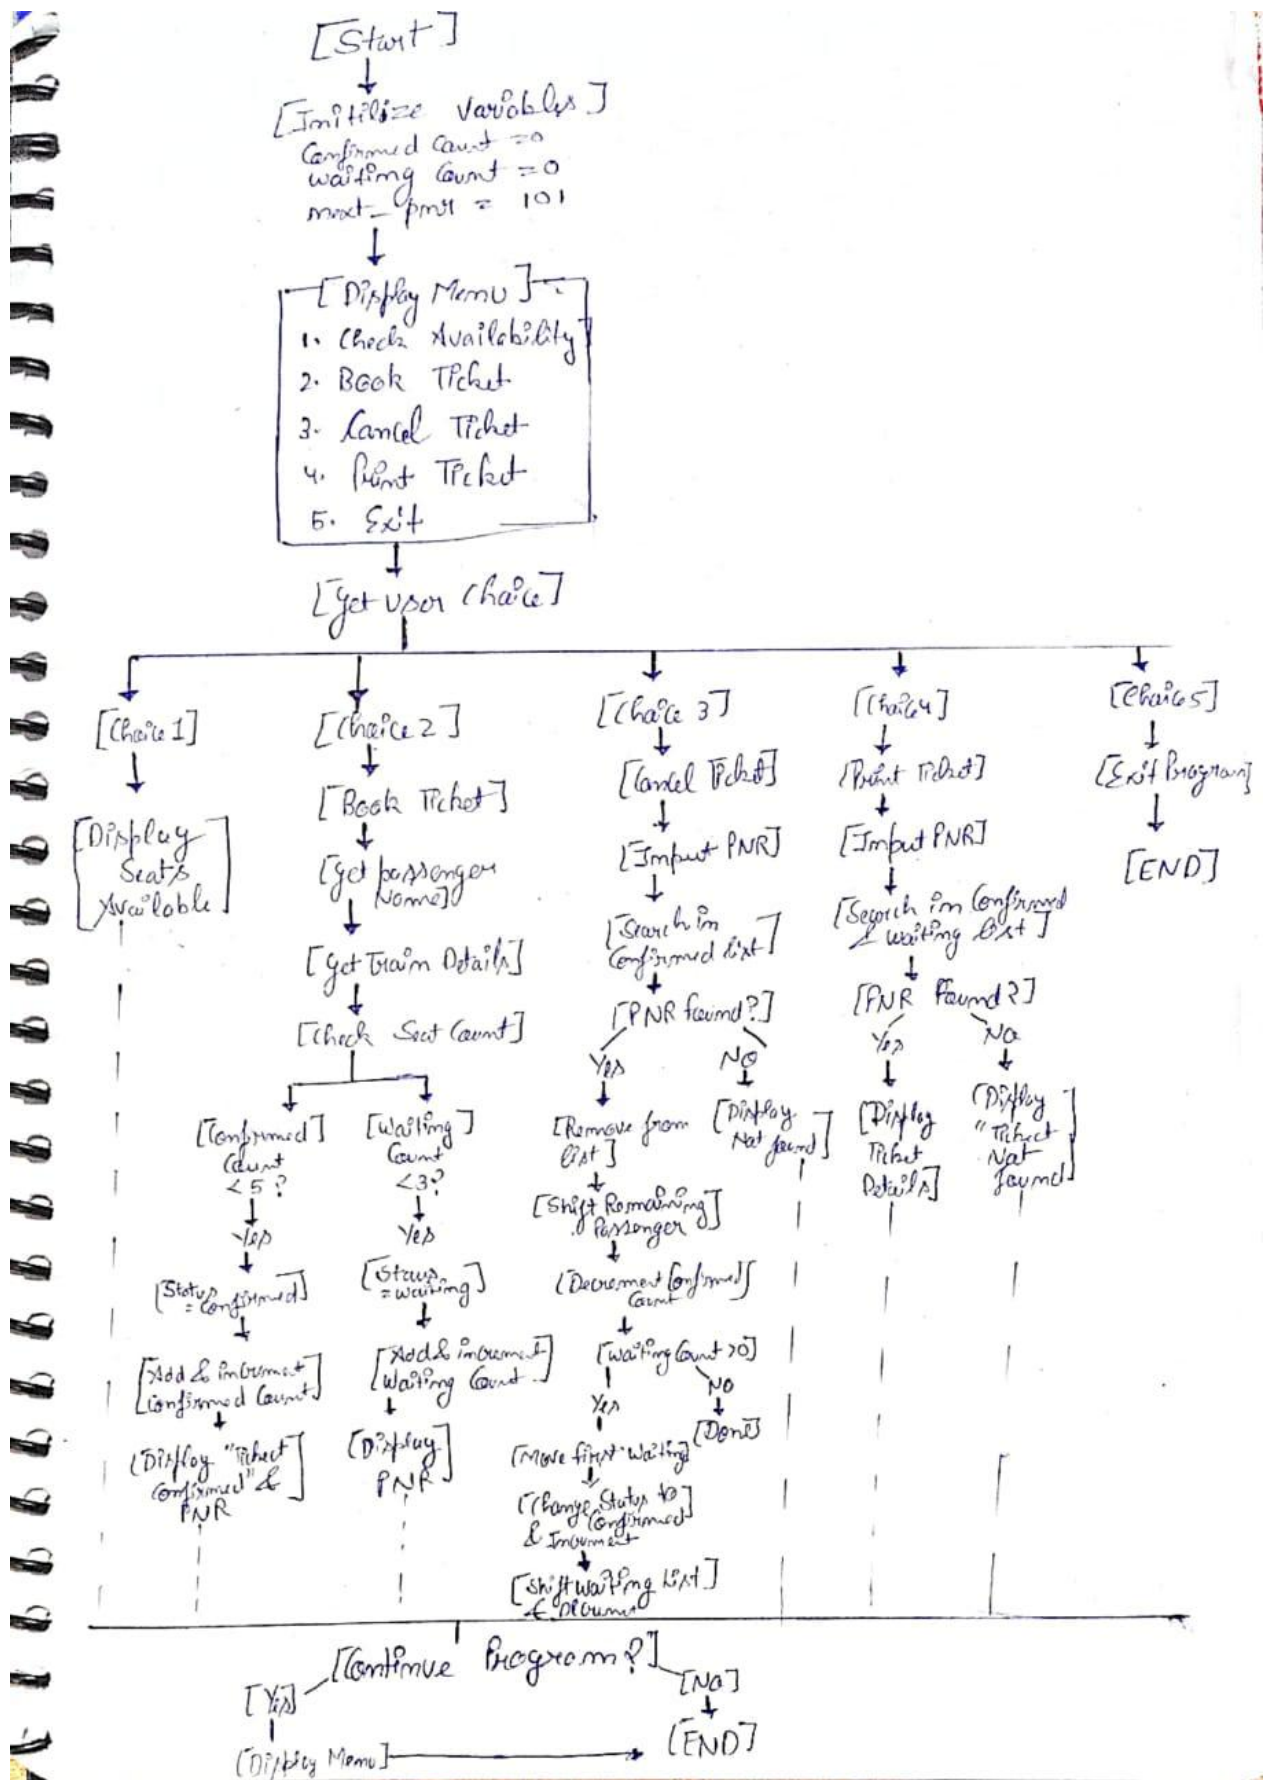 [Start]
[Initilize Variables]
Confirmed Count = 0
Waiting Count = 0
next_pnr = 101
[Display Menu]
1. Check Availability
2. Book Ticket
3. Cancel Ticket
4. Print Ticket
5. Exit
[Get User Choice]
[Choice 1]
[Display
Seats
Available]
[Choice 2]
[Book Ticket]
[Get passenger
Name]
[Get Train Details]
[Check Seat Count]
[Confirmed]
Count
<5?
Yes
[Status
= Confirmed]
[Add & increment
Confirmed Count]
[Display "Ticket
Confirmed" &
PNR]
[Waiting]
Count
<3?
Yes
[Status
= Waiting]
[Add & increment
Waiting Count]
[Display
PNR]
[Choice 3]
[Cancel Ticket]
[Input PNR]
[Search in
Confirmed List]
[PNR found?]
Yes
[Remove from
List]
[Shift Remaining
Passenger]
[Decrement Confirmed
Count]
[Waiting Count >0]
Yes
[Move first Waiting]
[Change Status to
Confirmed
& Increment]
[Shift Waiting List]
&
No
[Done]
No
[Display
Not found]
[Choice 4]
[Print Ticket]
[Input PNR]
[Search in Confirmed
& Waiting List]
[PNR Found?]
Yes
[Display
Ticket
Details]
No
[Display
"Ticket
Not
found]
[Choice 5]
[Exit Program]
[END]
[Continue Program?]
[Yes]
[Display Menu]
[No]
[END]